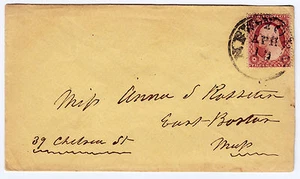 Miss Anna S Rosseter
East Boston
39 Chelsea St
Mass
APR